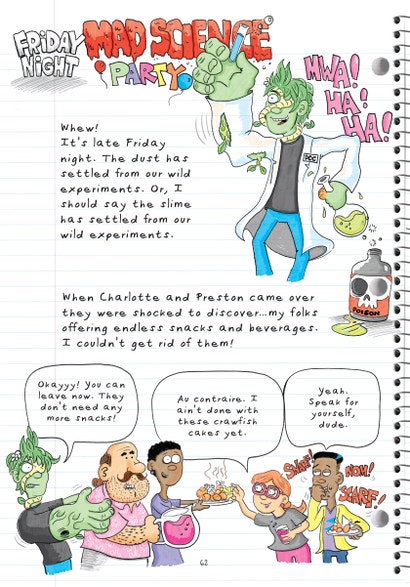 FRIDAY NIGHT
MAD SCIENCE
PARTY
MWA!
HA!
HA!
Whew!
It's late Friday
night. The dust has
settled from our wild
experiments. Or, I
should say the slime
has settled from our
wild experiments.
POISON
When Charlotte and Preston came over
they were shocked to discover...my folks
offering endless snacks and beverages.
I couldn't get rid of them!
Okayyy! You can
leave now. They
don't need any
more snacks!
Au contraire. I
ain't done with
these crawfish
cakes yet.
Yeah.
Speak for
yourself,
dude.
SNARF!
NOM!
SCARF!
62